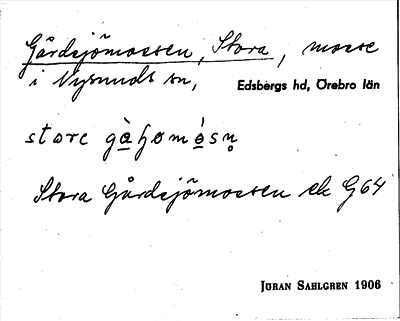 Gårdsjömossen, Stora, mosse
i Nysunds sn, Edsbergs hd, Örebro län
store
Stora Gårdsjömossen ek G64
JÖRAN SAHLGREN 1906